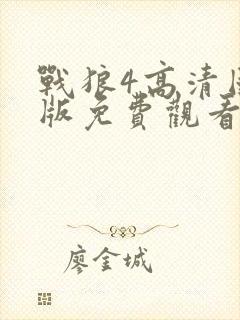 戰狼4高清
版免費觀看
廖金城